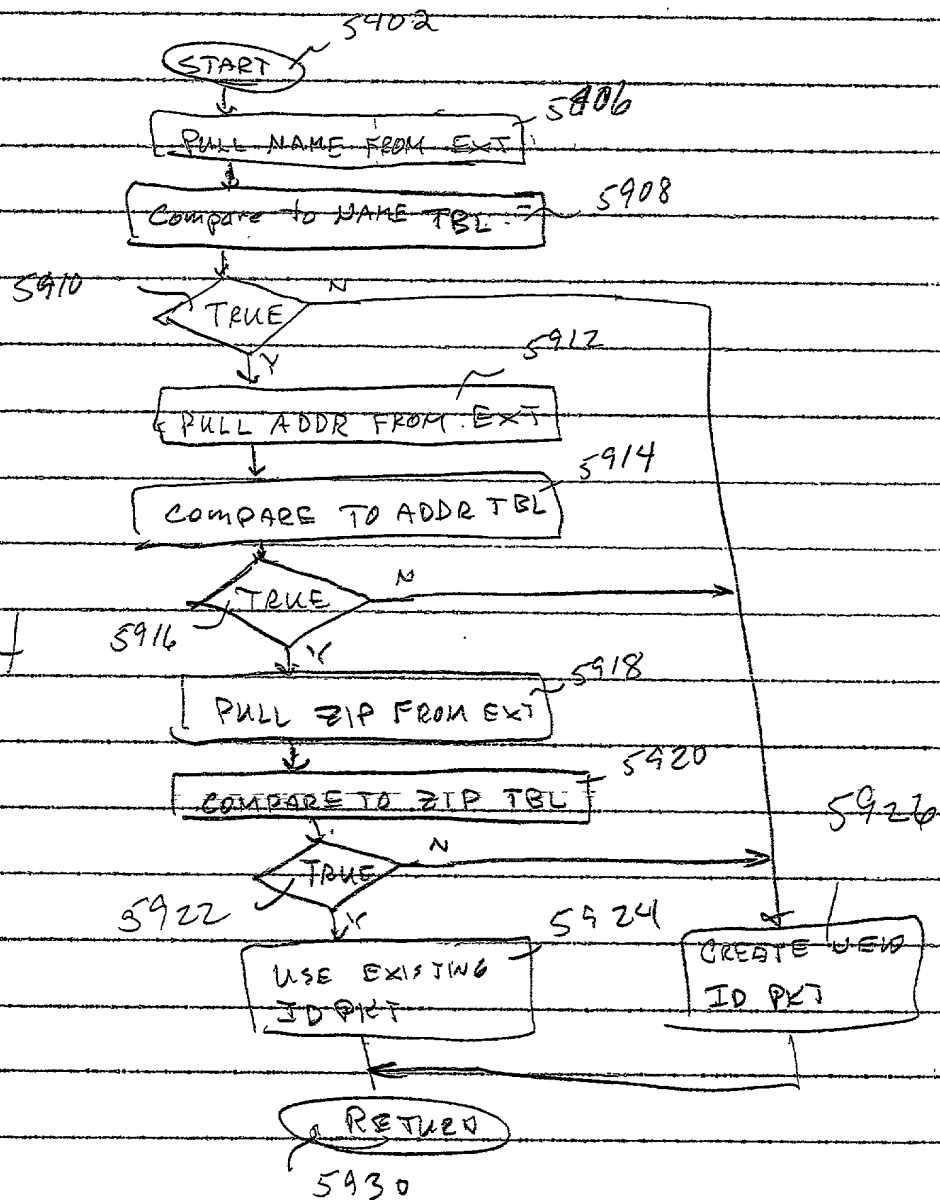 5902
START
5906
PULL NAME FROM EXT
Compare to NAME TBL
5908
5910
TRUE
N
Y
5912
PULL ADDR FROM EXT
5914
COMPARE TO ADDR TBL
TRUE
N
5916
Y
5918
PULL ZIP FROM EXT
5920
COMPARE TO ZIP TBL
5926
TRUE
N
5922
Y
5924
USE EXISTING
ID PKT
CREATE NEW
ID PKT
RETURN
5930